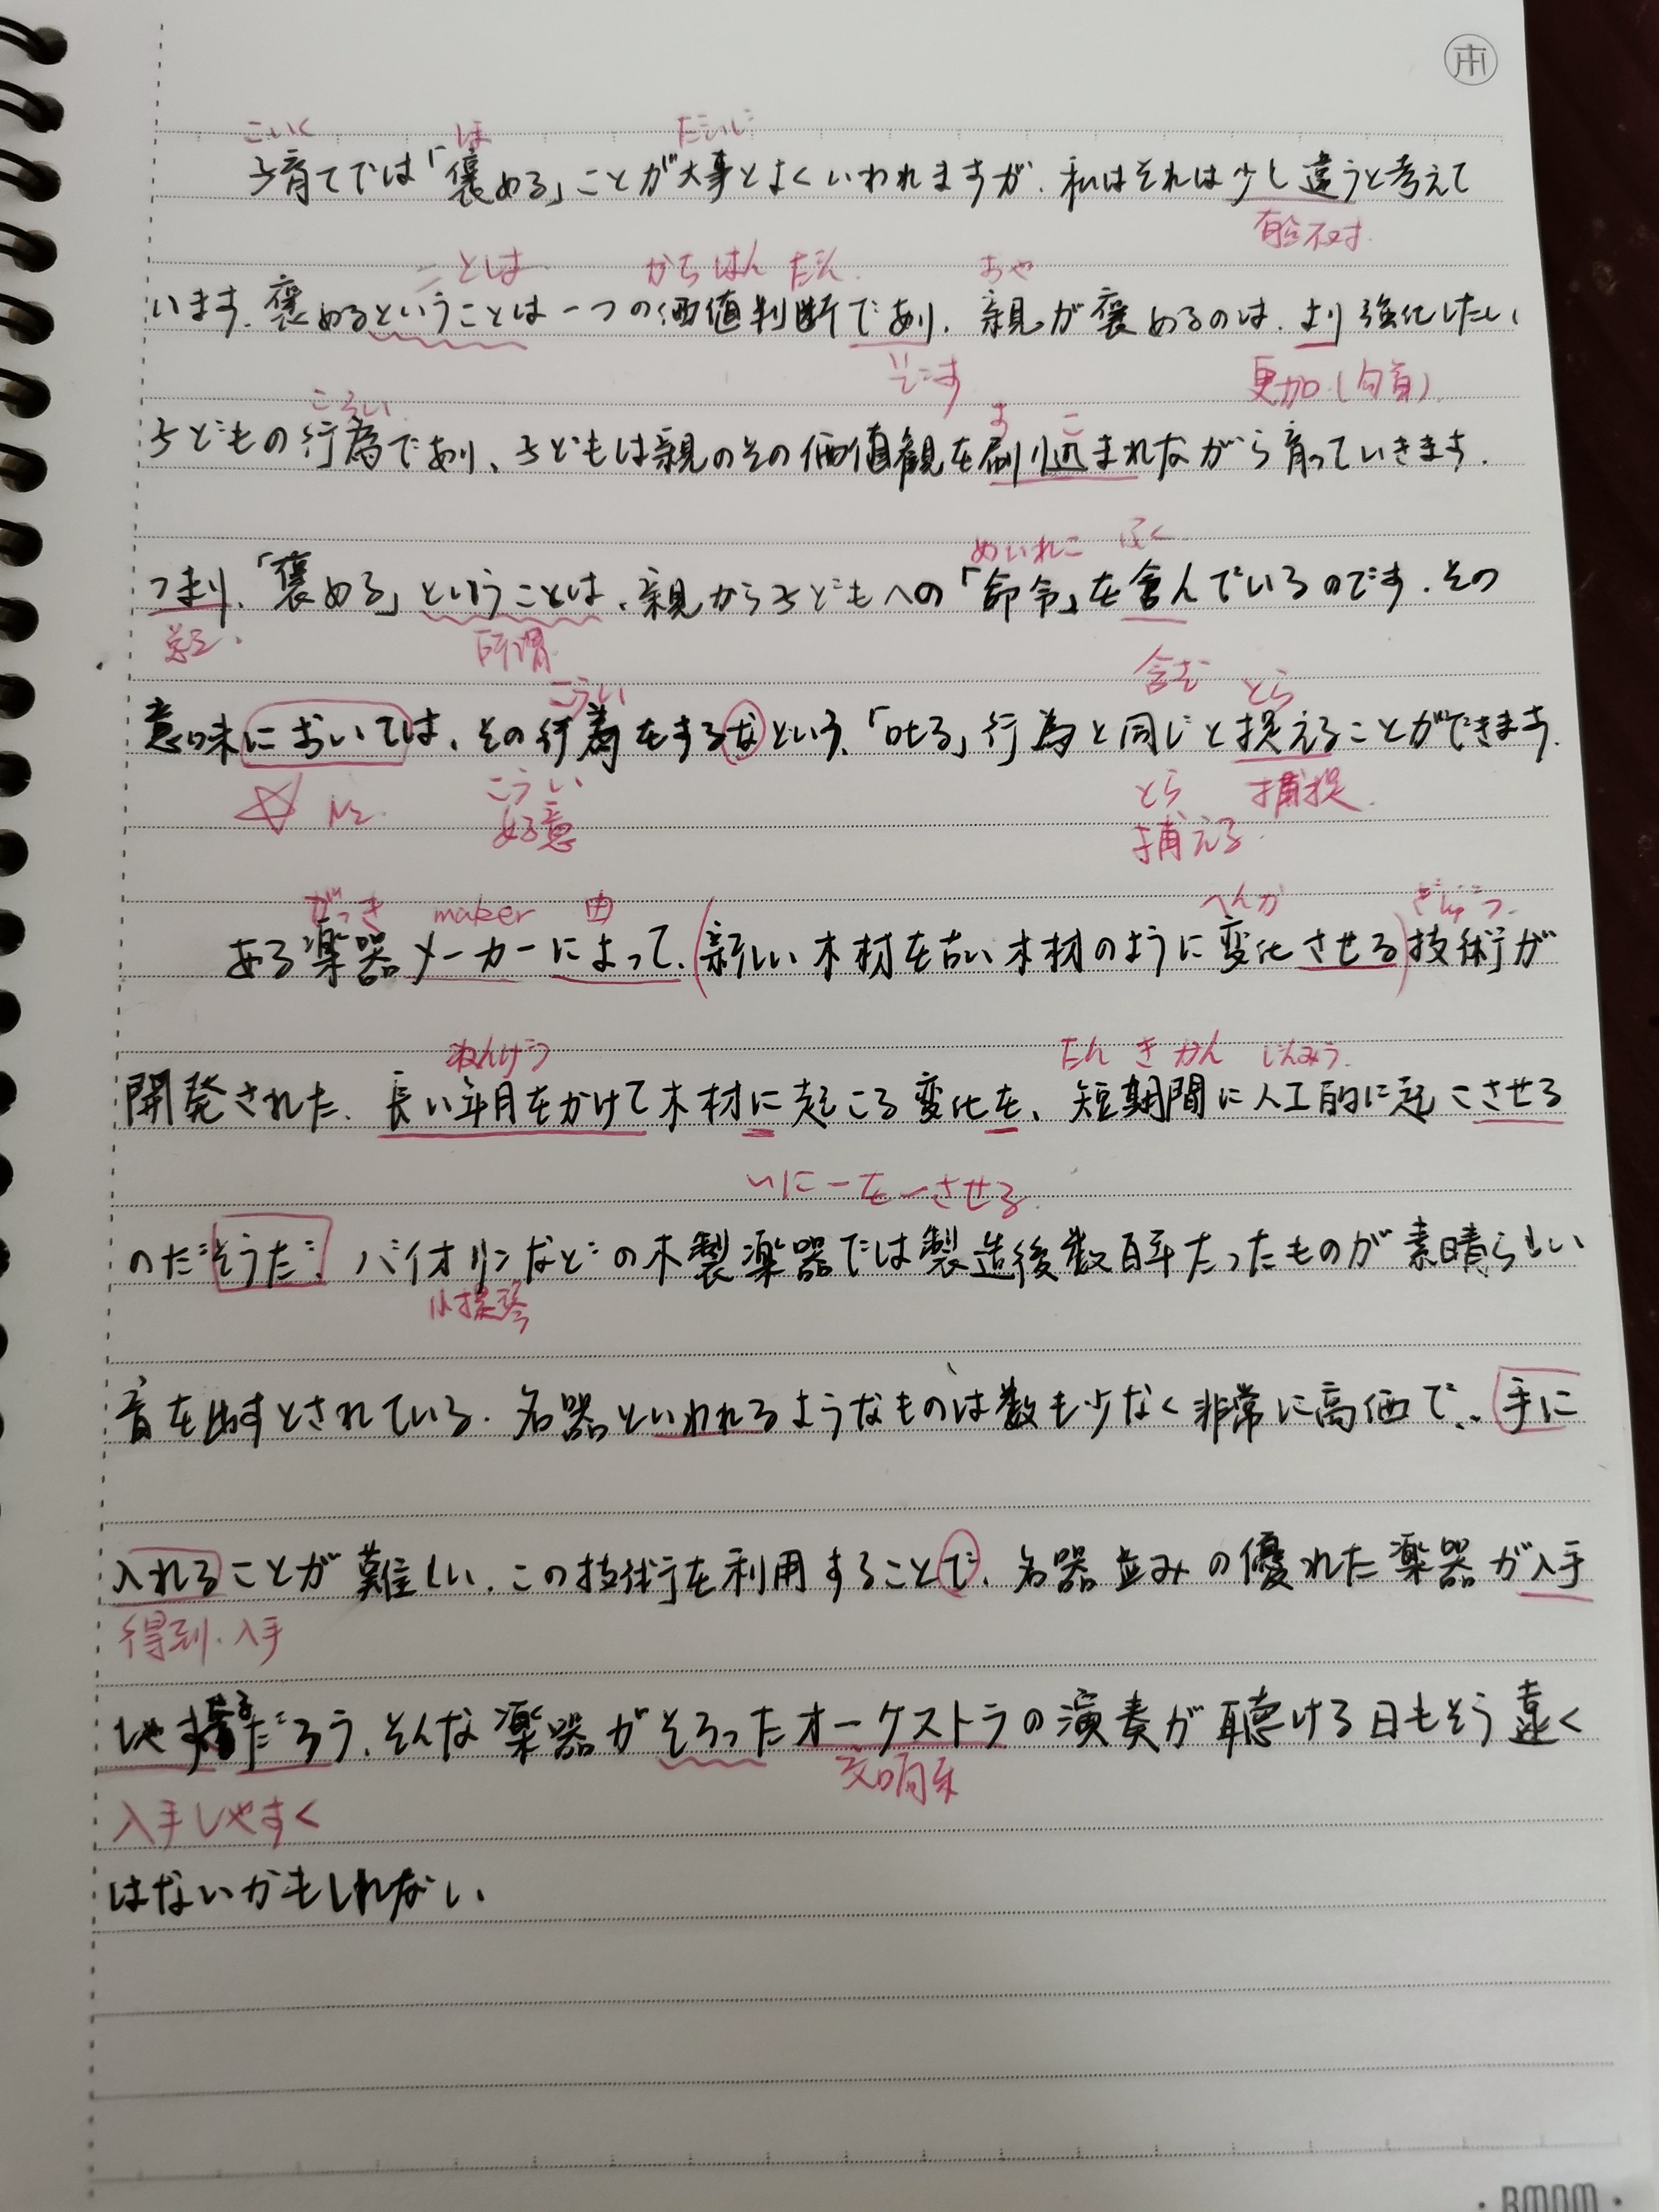 こいく ほ だいじ
子育てでは「褒める」ことが大事とよくいわれますが、私はそれは少し違うと考えて
有些不对
ことは かちはんだん おや
います。褒めるということは一つの価値判断であり、親が褒めるのは、より強化したい
です 更加(句首)
こうい す こ
子どもの行為であり、子どもは親のその価値観を刷り込まれながら育っていきます。
めいれこ ふく
つまり、「褒める」ということは、親から子どもへの「命令」を含んでいるのです。その
总之. 所谓 含む
こうい とら
意味においては、その行為をするなという、「叱る」行為と同じと捉えることができます。
こうい とら 捕捉
好意 捕える
がっき maker 由 へんか ぎじゅつ
ある楽器メーカーによって、(新しい木材を古い木材のように変化させる)技術が
ねんげつ たんきかん じんみつ
開発された。長い年月をかけて木材に起こる変化を、短期間に人工的に起こさせる
いに一を一させる
のだそうだ。バイオリンなどの木製楽器では製造後数百年たったものが素晴らしい
小提琴
音を出すとされている。名器といわれるようなものは数も少なく非常に高価で、手に
入れることが難しい。この技術を利用することで、名器並みの優れた楽器が入手
得到.入手
しやすくなるだろう。そんな楽器がそろったオーケストラの演奏が聴ける日もそう遠く
交响乐
入手しやすく
はないかもしれない。